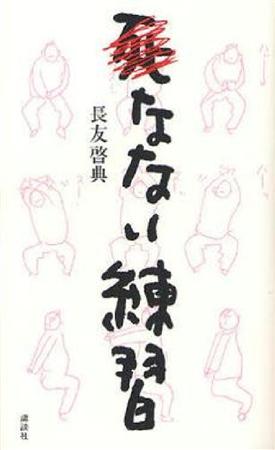 死なない練習
長友啓典
講談社